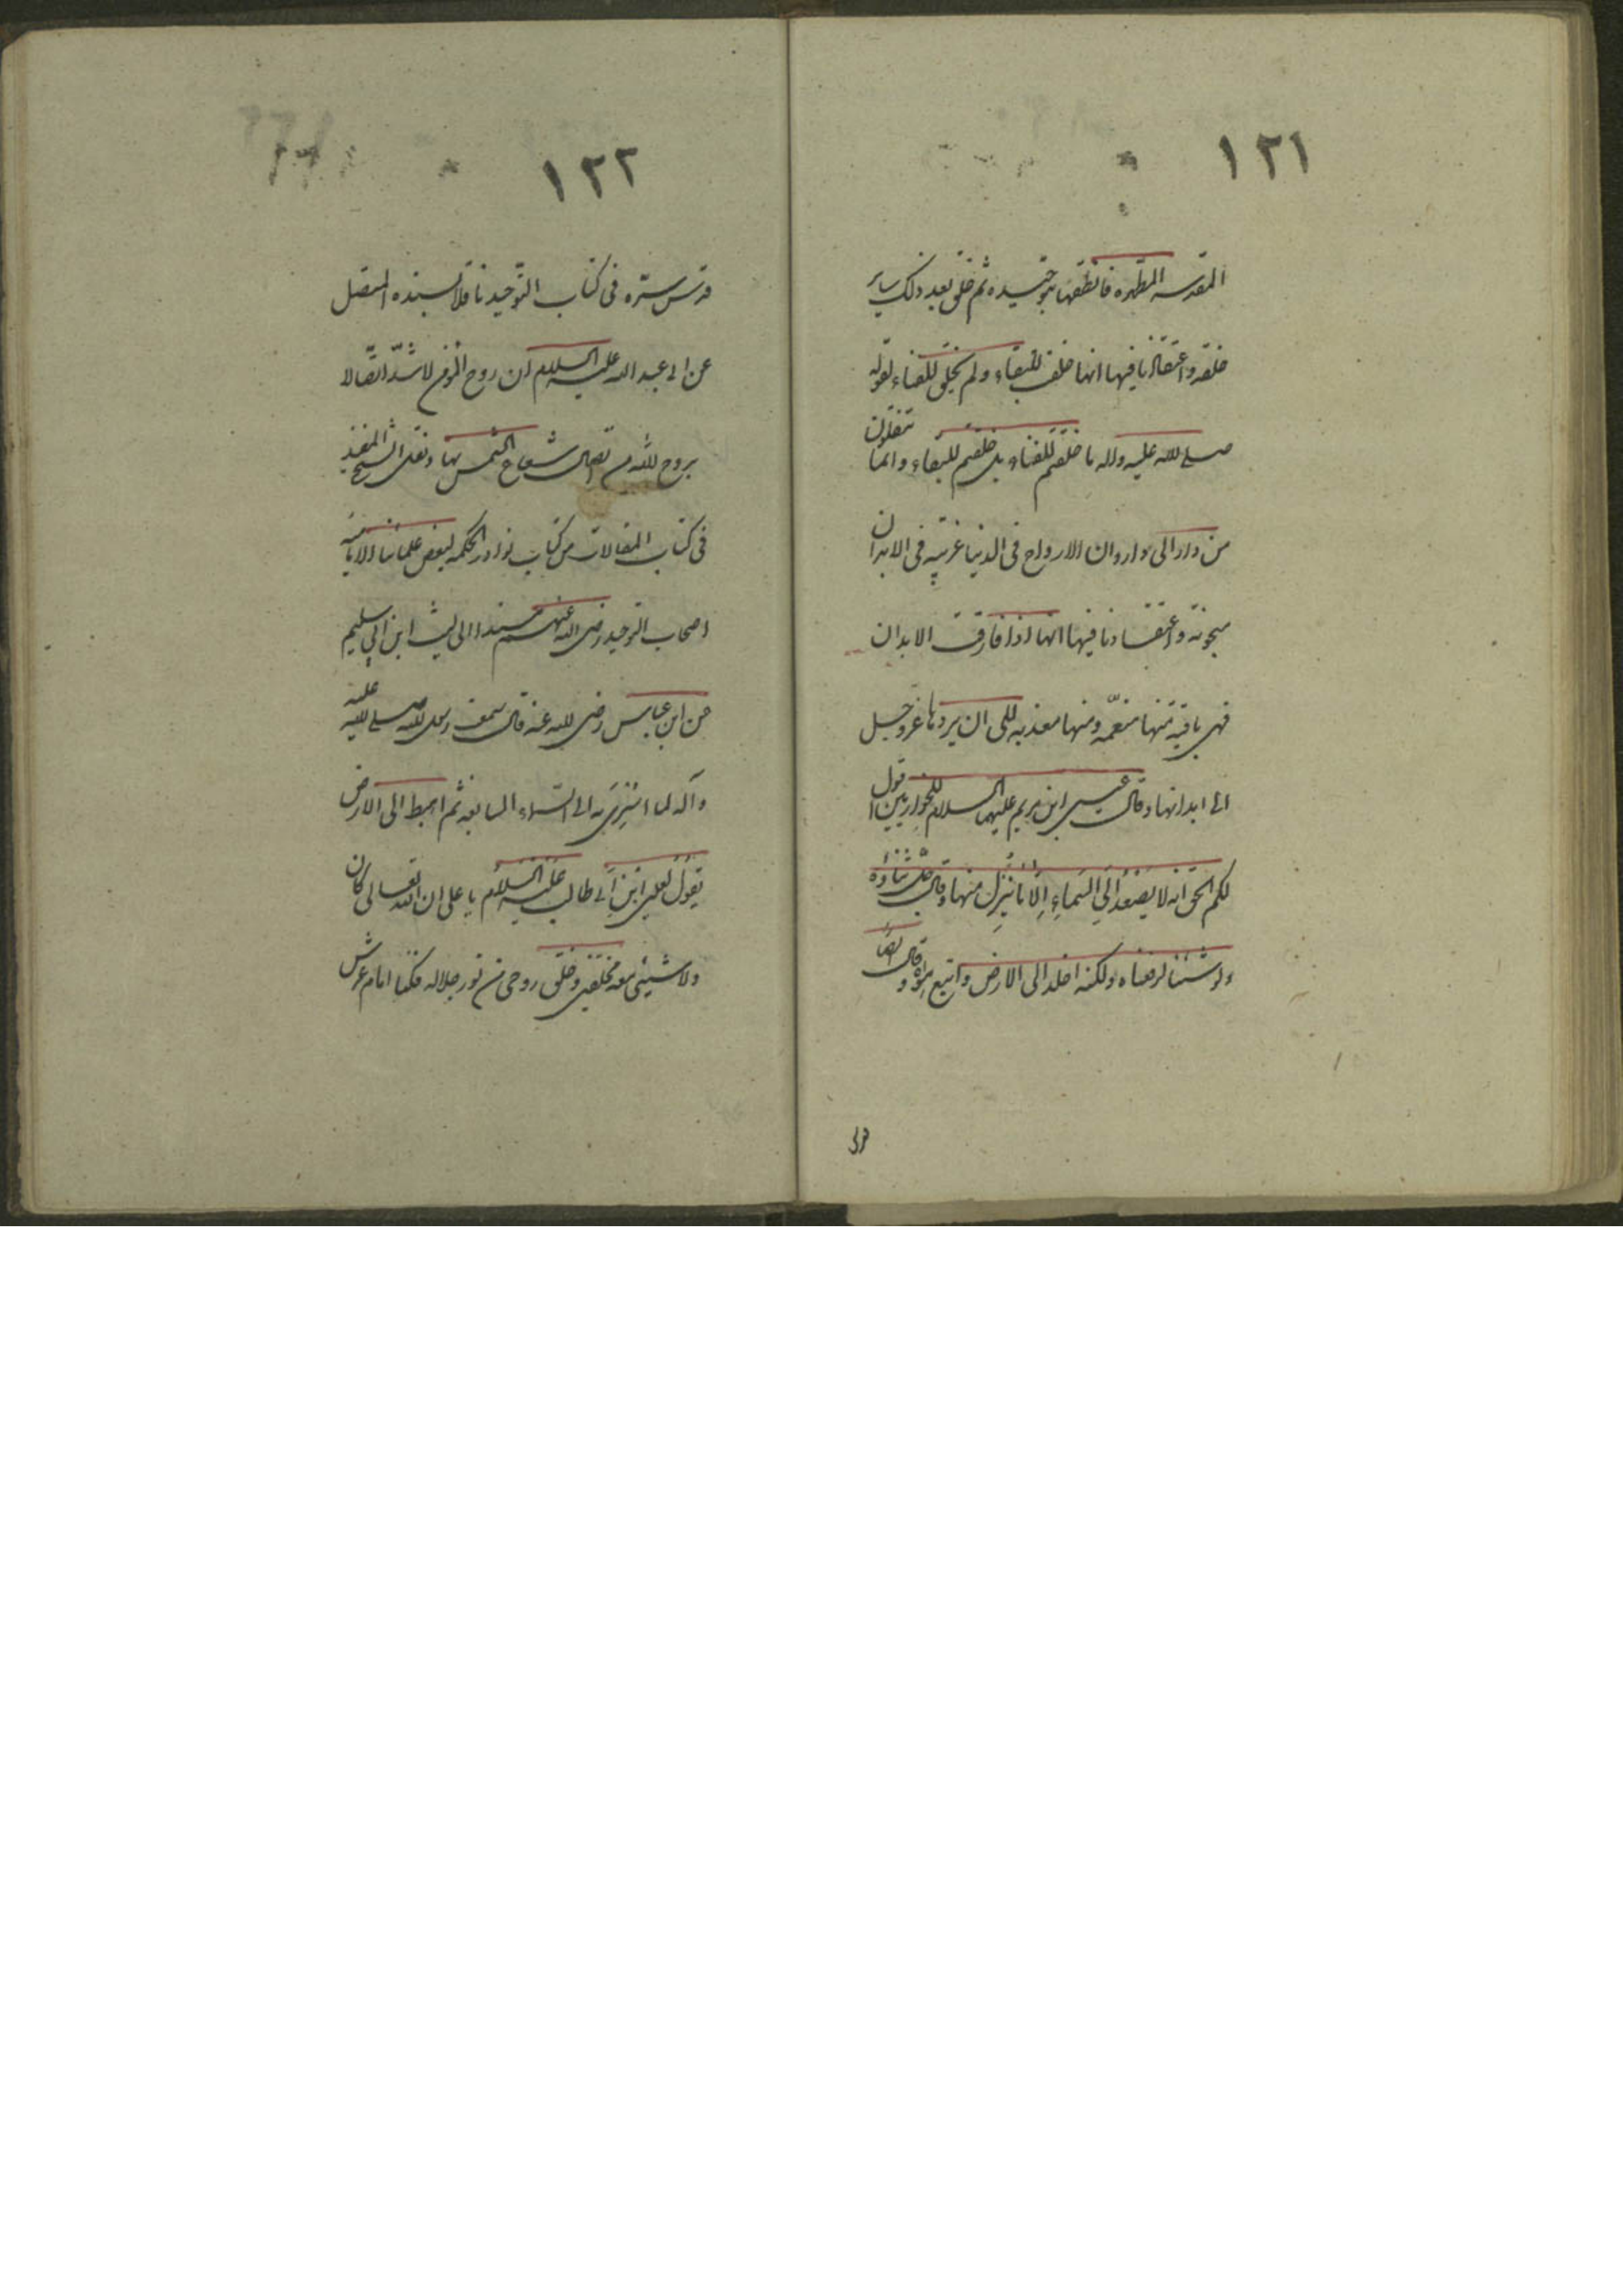 ١٢١
المقدسه المطهره فانطقها بتوحيده ثم خلق بعد ذلك ساير
خلقه و اعتقادنا فيها انها خلقت للبقاء و لم يخلق للفناء لقوله
صلى الله عليه و اله ما خلقتم للفناء بل خلقتم للبقاء و انما تنقلون
من دار الى دار و ان الارواح فى الدنيا غريبه فى الابدان
مسجونة و اعتقادنا فيها انها اذا فارقت الابدان
فهى باقية منها منعمّه و منها معذبه الى ان يردها عز و جل
الى ابدانها و قال عيسى ابن مريم عليهما السلام للحواريين اقول
لكم الحق انه لا يَصْعَدُ اِلَى السَماءِ اِلّا ما نَزَلَ منها و قال جلّ ثناؤه
و لو شئنا لرفعناه و لكنه اخلد الى الارض و اتبع هواه و قال ايضا
١٢٢
قدّس سرّه فى كتاب التوّحيد ناقلا بسنده المتصل
عن ابى عبد الله عليه السلام ان روح المؤمن لاشدّ اتصّالا
بروح الله من اتصال شعاع الشمس بها و نقل الشيخ المفيد
فى كتاب المقالات من كتاب نوادر الحكمه لبعض علمائنا الاماميه
اصحاب التوحيد رضى الله عنهم مسندا الى ليث ابن ابي سليم
عن ابن عباس رضى الله عنه قال سمعت رسول الله صلى الله عليه
و آله لما اسْرِىَ به الى السّماء السابعه ثم اهبط الى الارض
يَقُولُ لِعلى ابْنِ اَبى طالب عَلَيْه السَّلامُ يا على ان الله تعالى كان
و لا شيئى معه فخلقنى و خلق روحى من نور جلاله فكنا امام عرش